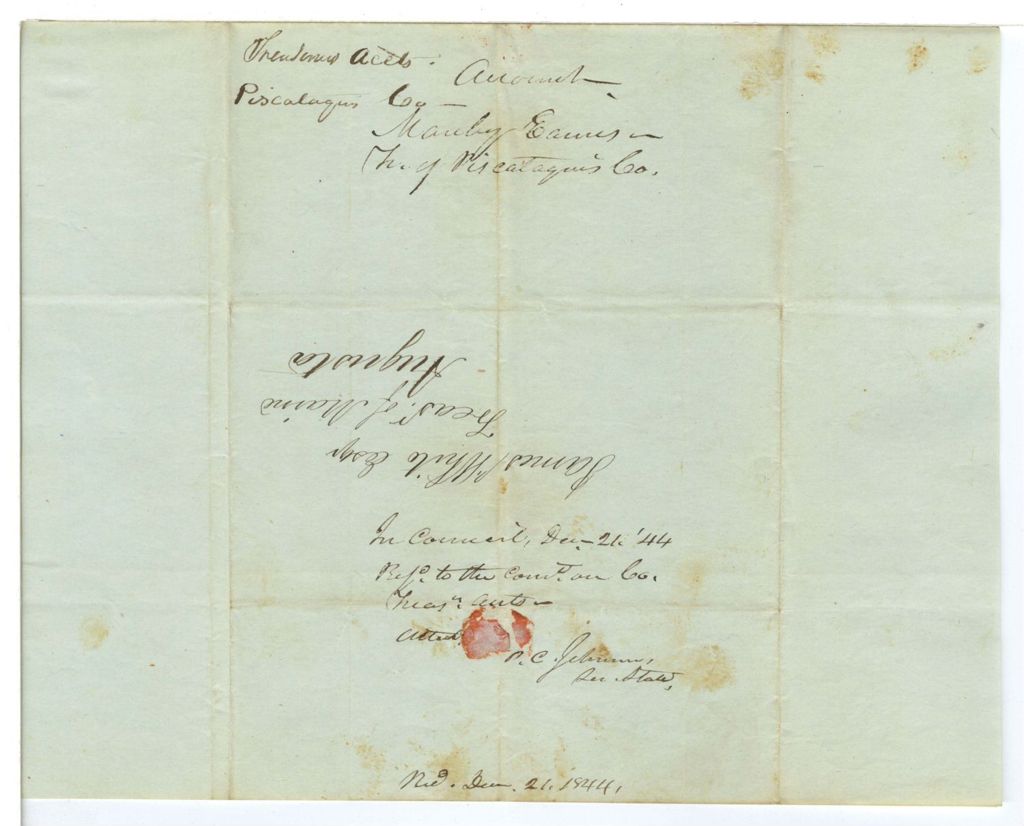 Treasurers Accts.
Piscataquis Co —
Account —
Manley Eames —
Tr. of Piscataquis Co.
James White Esqr
Treasr. of Maine
Augusta
In Council, Dec. 21. '44
Refd. to the Comte. on Co.
Treasrs. accts —
Attest,
P. C. Johnson,
Sec. State,
Recd. Dec. 21. 1844.